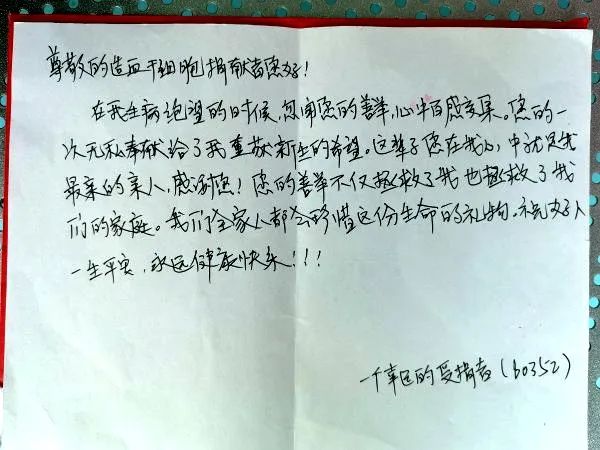 尊敬的造血干细胞捐献者您好！
在我生病绝望的时候，忽闻您的善举，心中百感交集。您的一
次无私奉献给了我重获新生的希望。这辈子您在我心中就是我
最亲的亲人，感谢您！您的善举不仅拯救了我也拯救了我
们的家庭。我们全家人都会珍惜这份生命的礼物。祝好人
一生平安，永远健康快乐！！！
一个幸运的受捐者（60352）